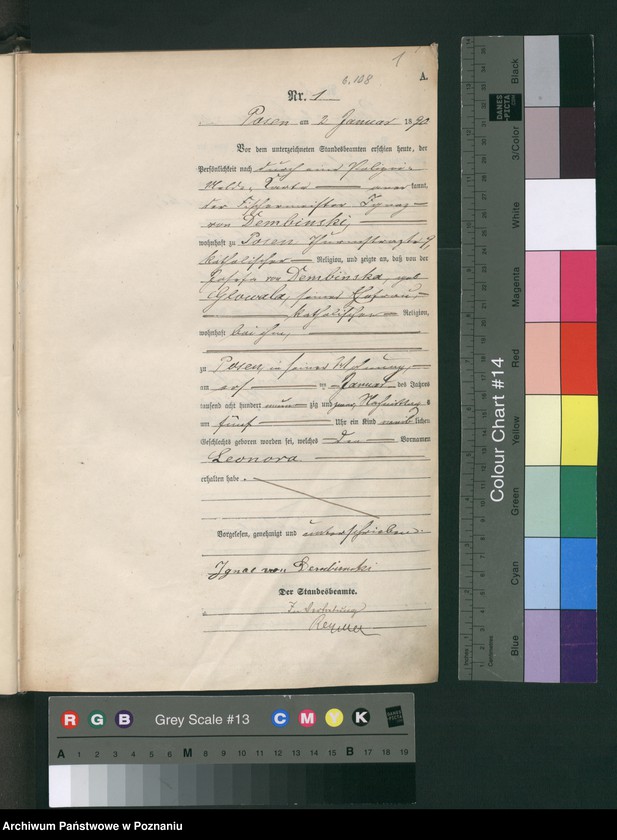 1
6.108
A.
Nr. 1
Posen am 2 Januar 1890
Vor dem unterzeichneten Standesbeamten erschien heute, der
Persönlichkeit nach durch eine Polizei-
Melde-Karte anerkannt,
der Fischermeister Ignaz
von Dembinski,
wohnhaft zu Posen
katholischer Religion, und zeigte an, daß von der
Josefa von Dembinska, geb
Glowala, seiner Ehefrau,
katholischer Religion,
wohnhaft bei ihm,
zu Posen, in seiner Wohnung,
am ersten Januar des Jahres
tausend acht hundert neunzig und zwar Nachmittags
um fünf Uhr ein Kind weiblichen
Geschlechts geboren worden sei, welches den Vornamen
Leonora
erhalten habe.
Vorgelesen, genehmigt und unterschrieben.
Ignac von Dembinski
Der Standesbeamte.
In Vertretung
R G B Grey Scale #13 C M Y K DANES PICTA
A 1 2 3 4 5 6 M 8 9 10 11 12 13 14 15 B 17 18 19
Colour Chart #14
DANES-PICTA.COM
Black
3/Color
White
Magenta
Red
Yellow
Green
Cyan
Blue
Inches
Centimetres
Archiwum Państwowe w Poznaniu